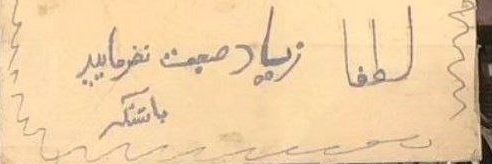 لطفا زیاد صحبت نفرمایید
باتشکر